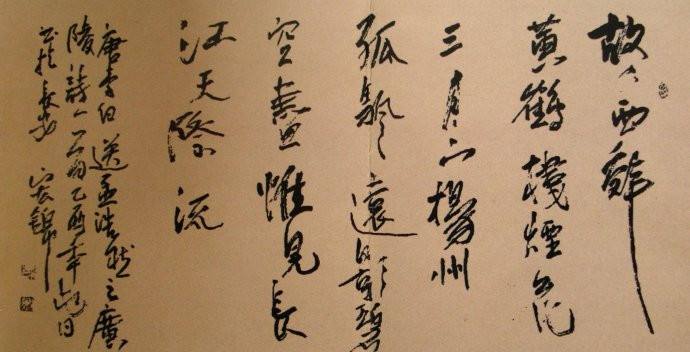 故人西辭
黄鶴樓煙花
三月下揚州
孤帆遠影碧
空盡惟見長
江天際流
唐李白送孟浩然之廣
陵詩一首乙酉年日
於長安